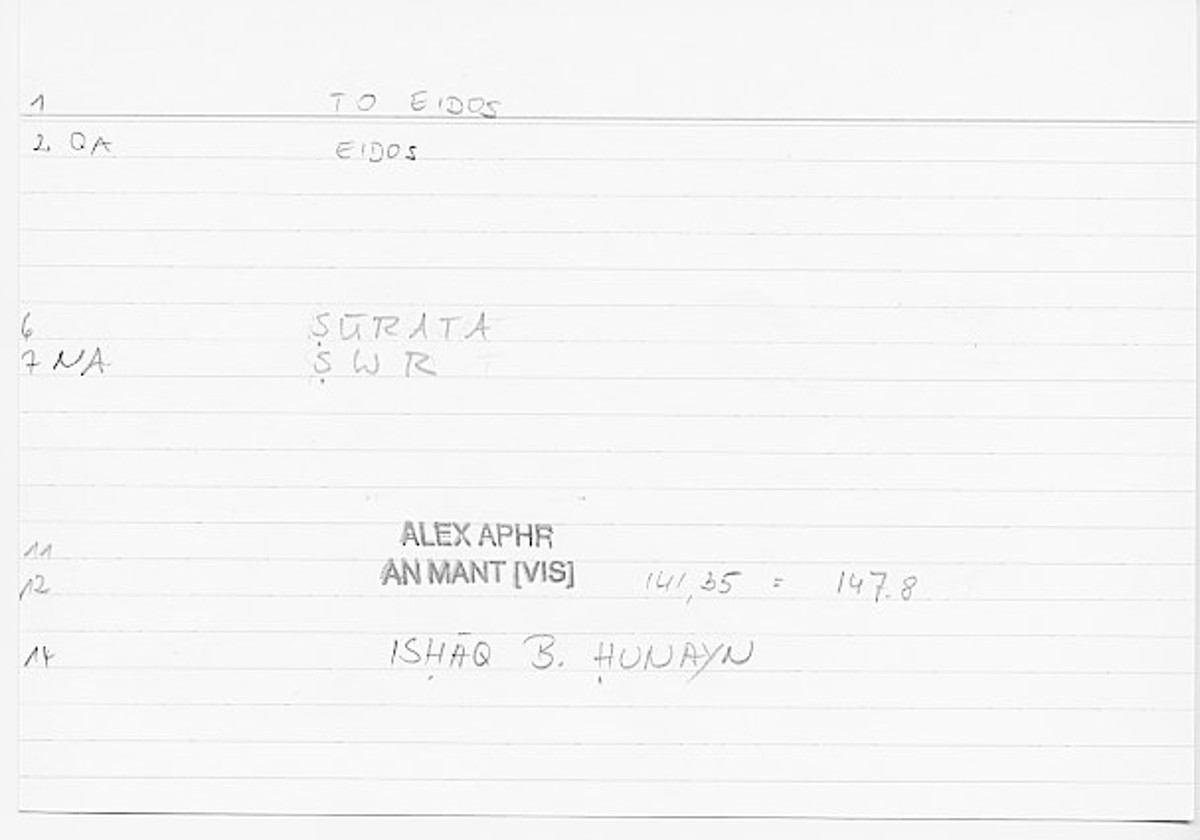 1 TO EIDOS
2. QA EIDOS
6 ṢŪRATA
7 NA ṢWR
11 ALEX APHR
12 AN MANT [VIS] 141,35 = 147.8
14 ISḤĀQ B. ḤUNAYN